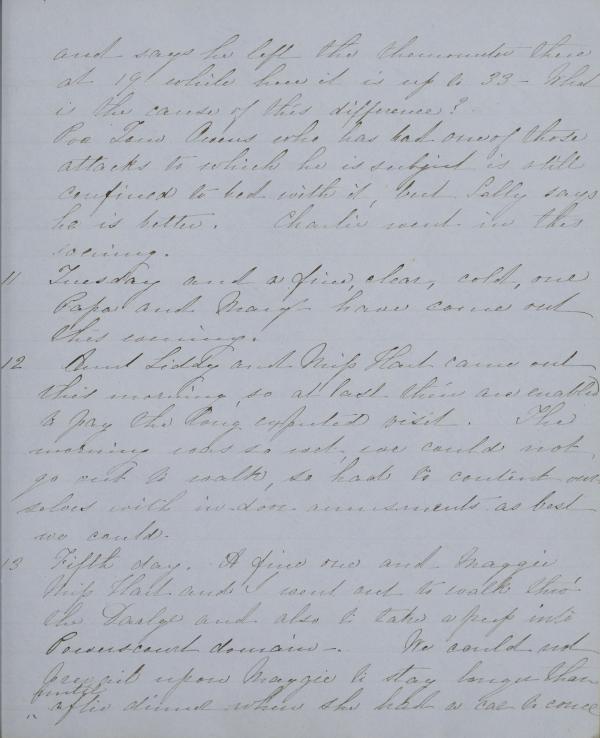 and says he left the thermometer there
at 19 while here it is up to 33 - What
is the cause of this difference?
Poor Tom Owens who has had one of those
attacks to which he is subject is still
confined to bed with it, but Sally says
he is better. Charlie went in this
evening.
11 Tuesday and a fine, clear, cold, one
Papa and Mary have come out
this evening.
12 Aunt Liddy and Miss Hart came out
this morning, so at last they are enabled
to pay the long expected visit. The
morning was so wet, we could not
go out to walk, so had to content our
selves with in-door amusements as best
we could.
13 Fifth day. A fine one and Maggie
Miss Hart and I went out to walk thro'
the Dargle and also to take a peep into
Powerscourt domain -. We could not
prevail upon Maggie to stay longer than
until
" after dinner when she had a car to